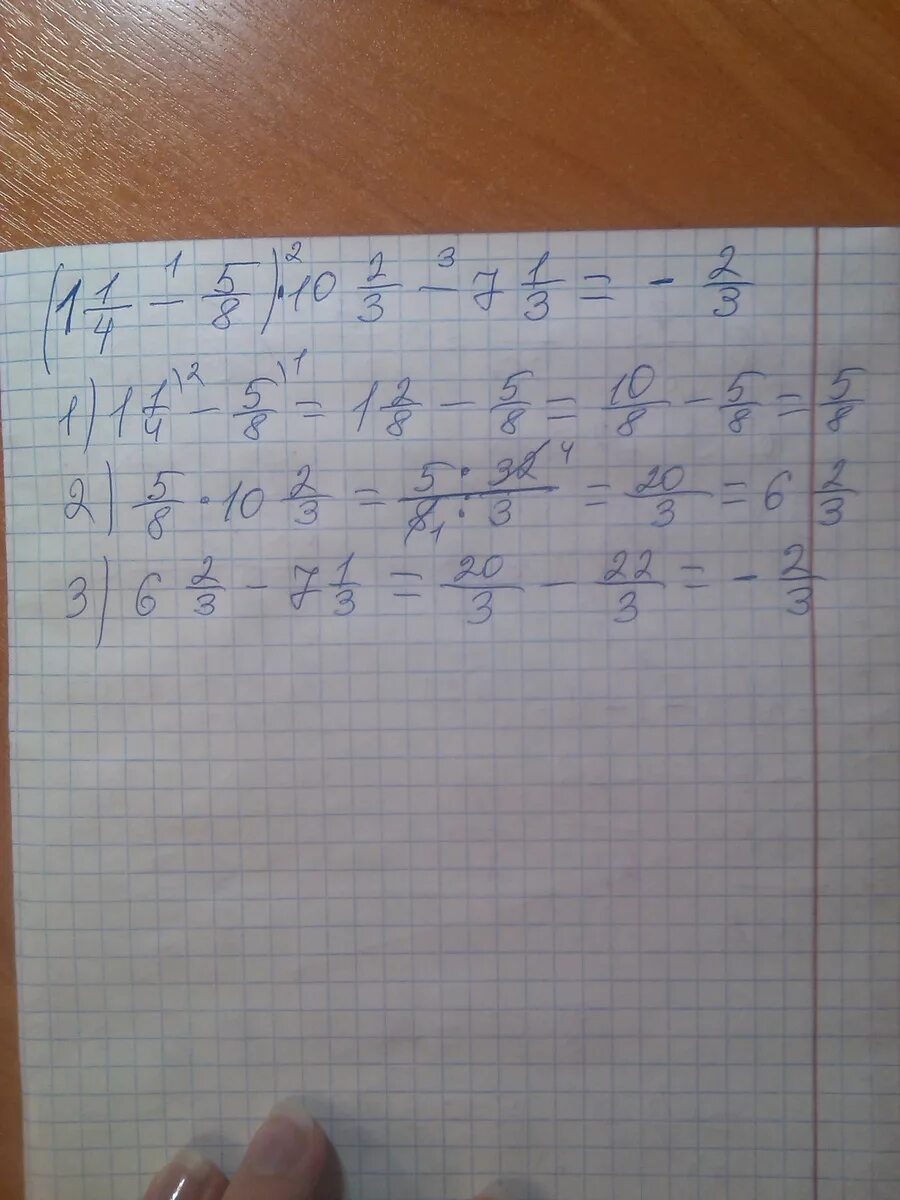 (1 1/4 -¹ 5/8) ·² 10 2/3 -³ 7 1/3 = - 2/3
1) 1 1/4 \2 - 5/8 \1 = 1 2/8 - 5/8 = 10/8 - 5/8 = 5/8
2) 5/8 · 10 2/3 = 5 · 32 4 / 8 1 · 3 = 20/3 = 6 2/3
3) 6 2/3 - 7 1/3 = 20/3 - 22/3 = - 2/3